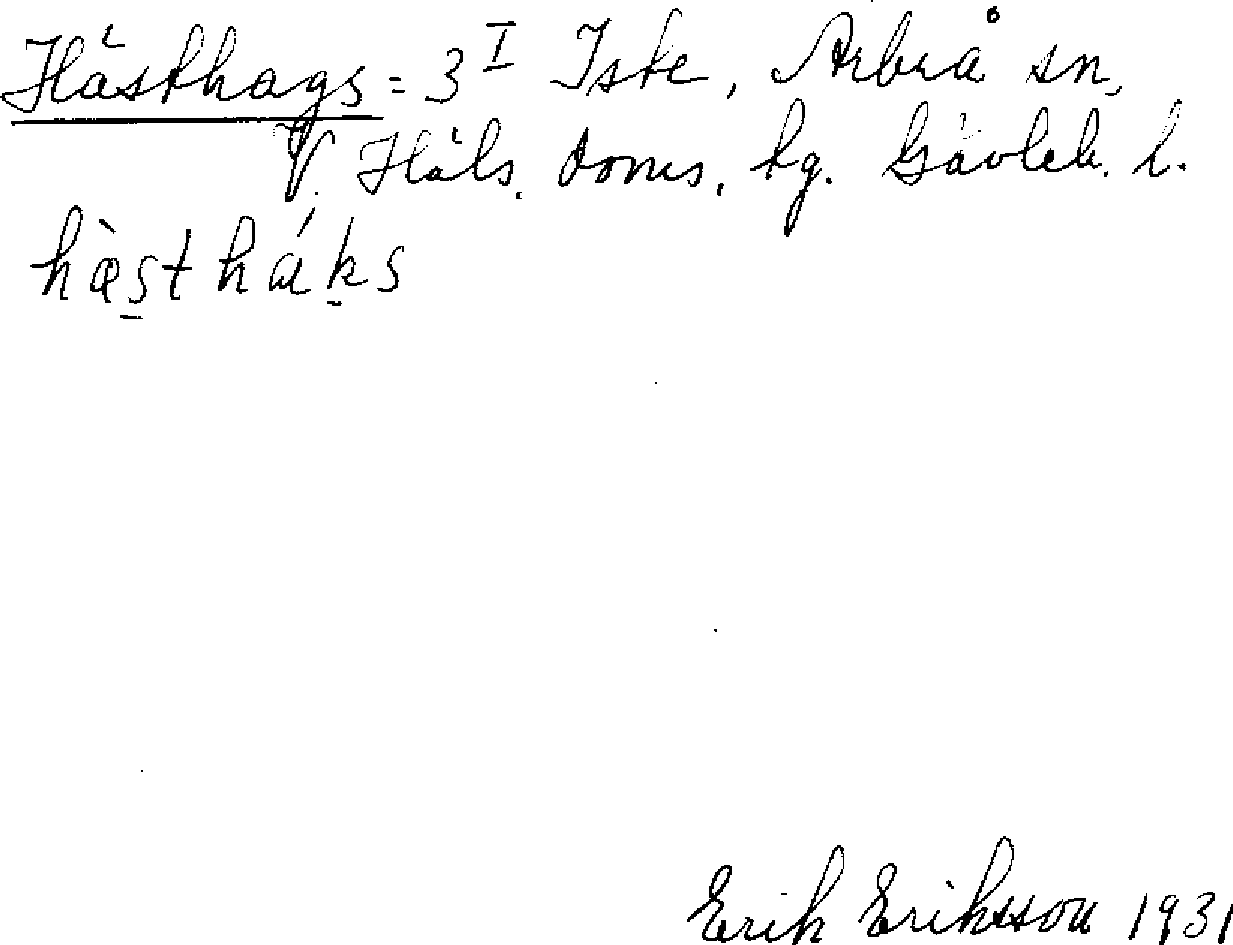 Hästhags = 3 I Iste, Arbrå sn,
V. Häls. doms. tg. Gävleb. l.
hæ̀st háks
Erik Eriksson 1931